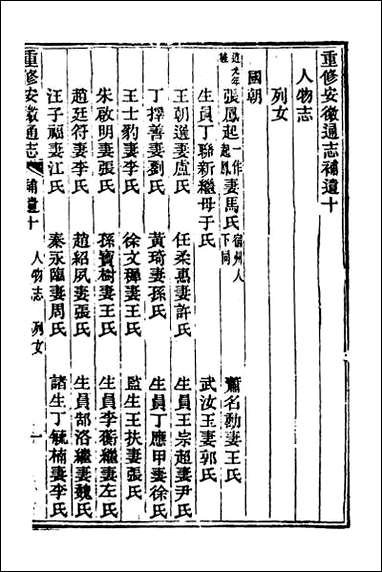 重修安徽通志補遺十
人物志
列女
國朝
張鳳起一作起鳳妻馬氏宿州人下同 蕭名勳妻王氏
生員丁聯新繼母于氏 武汝玉妻郭氏
王朝選妻盧氏 任柔惠妻許氏 生員王宗超妻尹氏
丁擇善妻劉氏 黃琦妻孫氏 生員丁應甲妻徐氏
王士豹妻李氏 徐文稗妻王氏 監生王扶妻張氏
朱啟明妻張氏 孫寶樹妻王氏 生員李蘅繼妻左氏
趙廷符妻李氏 趙紹夙妻張氏 生員部洛繼妻魏氏
汪子福妻江氏 秦永臨妻周氏 諸生丁毓楠妻李氏
重修安徽通志 補遺十 人物志 列女 一